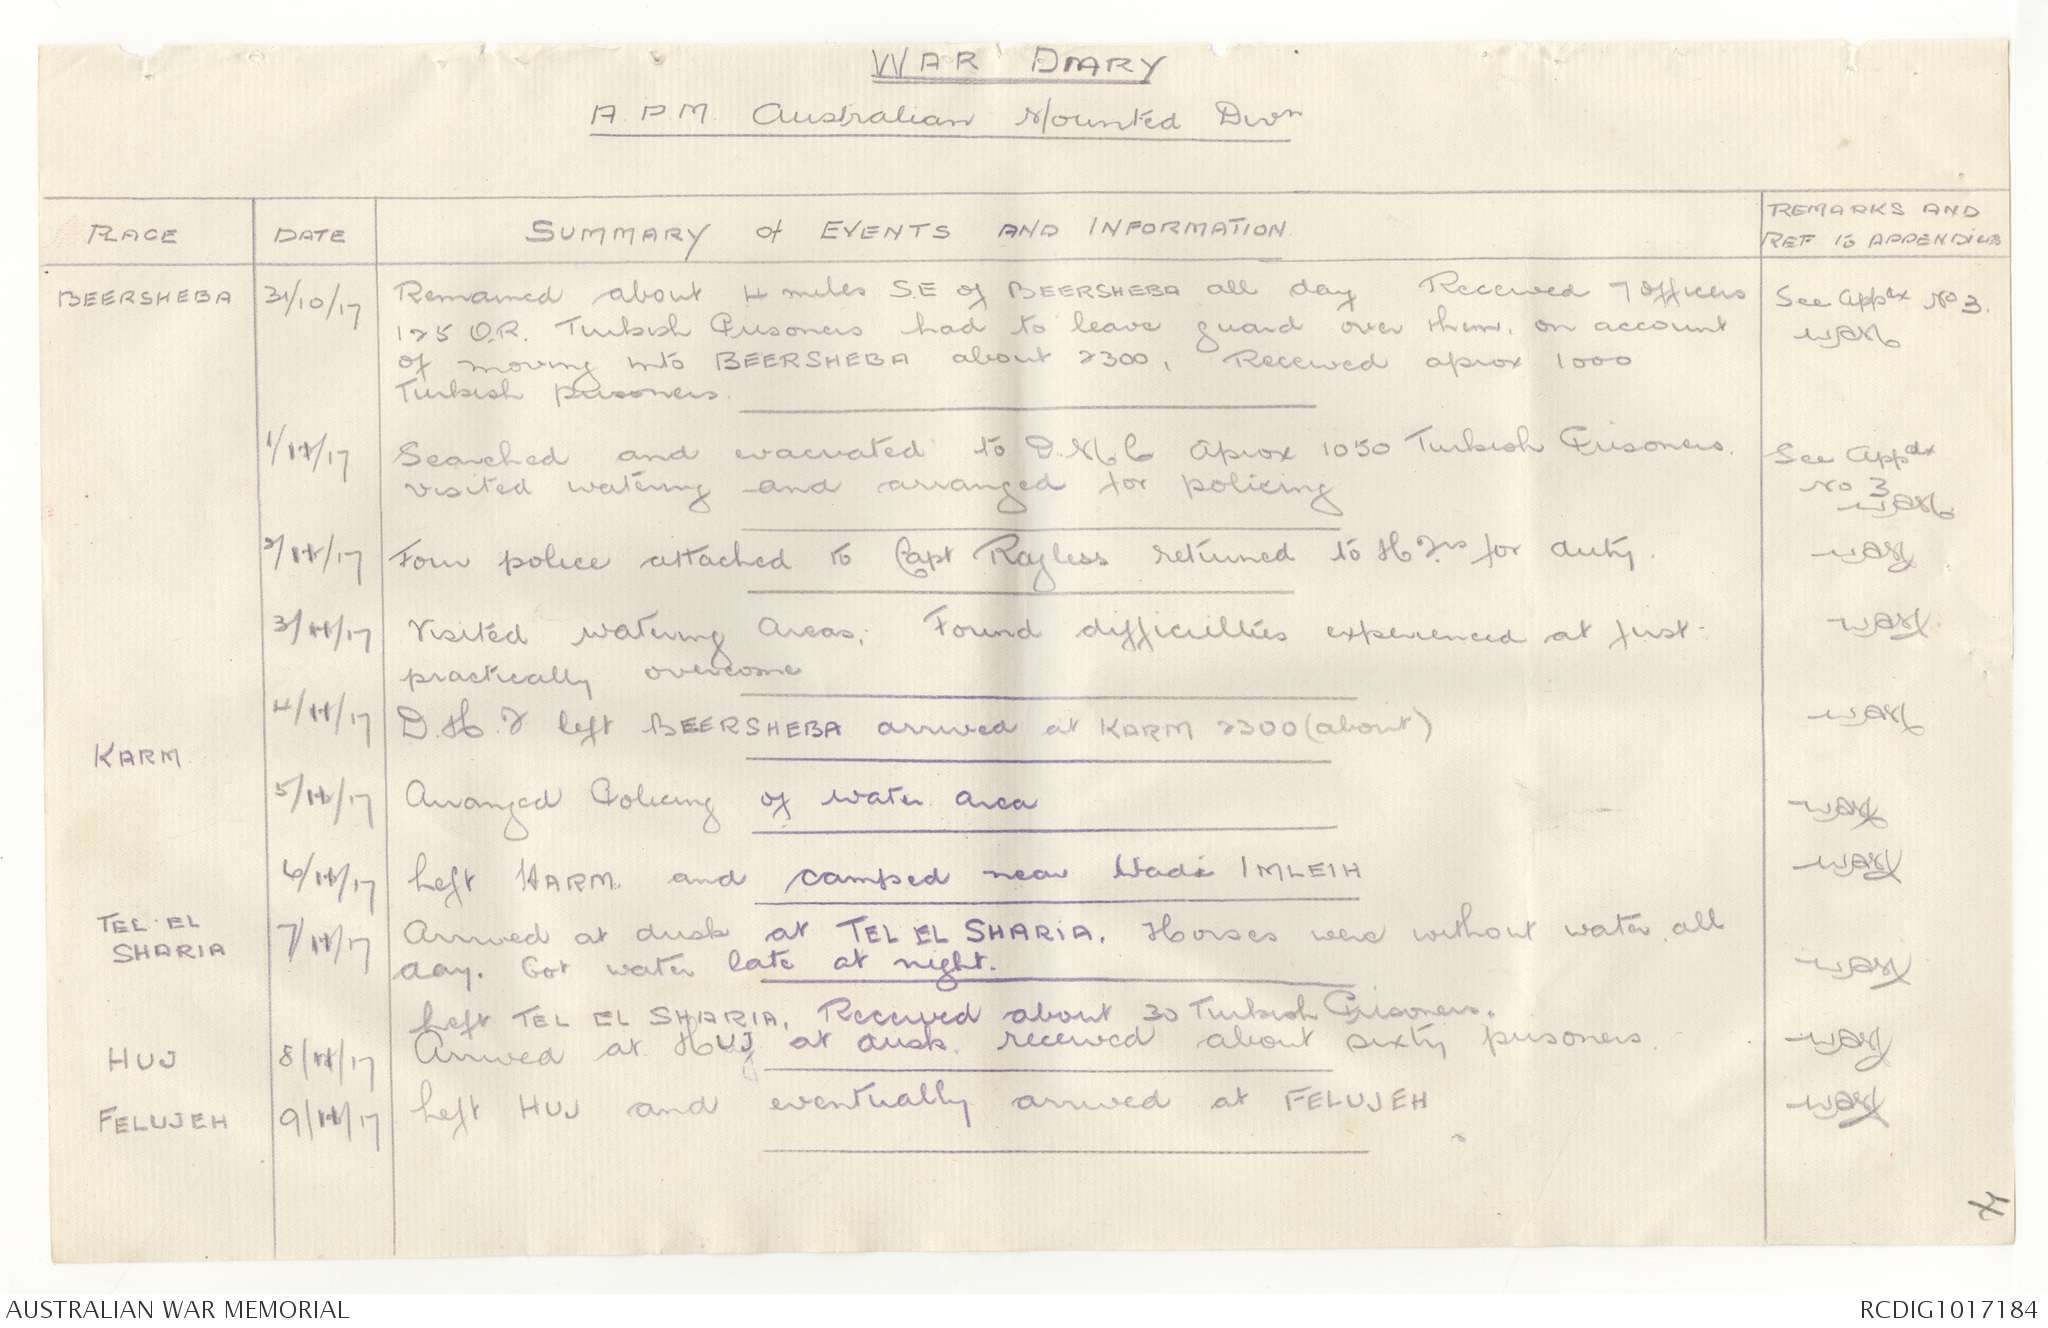 WAR DIARY
A.P.M. Australian Mounted Divn
PLACE DATE SUMMARY of EVENTS AND INFORMATION REMARKS AND
REF to APPENDICES
BEERSHEBA 31/10/17 Remained about 4 miles S.E of BEERSHEBA all day Received 7 Officers See Appdx No 3.
125 O.R. Turkish Prisoners had to leave guard over them. on account
of moving into BEERSHEBA about 2300, Received aprox 1000
Turkish prisoners.
1/11/17 Searched and evacuated to D.M.C aprox 1050 Turkish Prisoners. See Appdx
visited watering and arranged for policing No 3
2/11/17 Four police attached to Capt Rayless returned to H Qrs for duty.
3/11/17 Visited watering areas; Found difficulties experienced at first
practically overcome
4/11/17 D.H.Q left BEERSHEBA arrived at KARM 2300 (about)
KARM
5/11/17 Arranged Policing of water area
6/11/17 Left KARM. and camped near Wadi IMLEIH
TEL EL
SHARIA 7/11/17 Arrived at dusk at TEL EL SHARIA. Horses were without water all
day. Got water late at night.
Left TEL EL SHARIA. Received about 30 Turkish Prisoners.
HUJ 8/11/17 Arrived at HUJ at dusk. received about sixty prisoners.
FELUJEH 9/11/17 Left HUJ and eventually arrived at FELUJEH
AUSTRALIAN WAR MEMORIAL RCDIG1017184